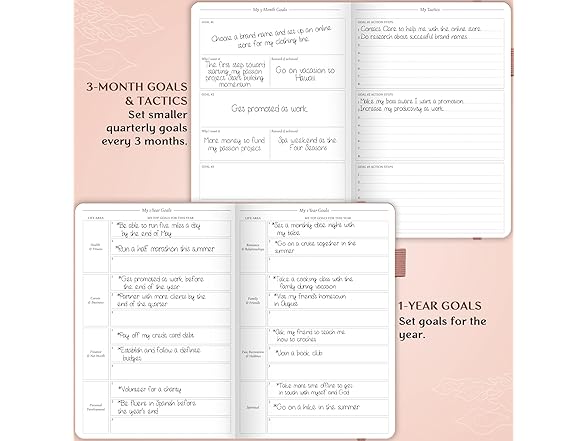 3-MONTH GOALS
& TACTICS
Set smaller
quarterly goals
every 3 months.
My 3 Month Goals
GOAL #1
Choose a brand name and set up an online
store for my clothing line.
Why I want it
The first step toward
starting my passion
project. Start building
momentum
Reward (if achieved)
Go on vacation to
Hawaii
GOAL #2
Get promoted at work.
Why I want it
More money to fund
my passion project
Reward (if achieved)
Spa weekend as the
Four Seasons
GOAL #3
My Tactics
GOAL #1 ACTION STEPS
Contact Clare to help me with the online store.
Do research about successful brand names
GOAL #2 ACTION STEPS
Make my boss aware I want a promotion.
Increase my productivity at work.
GOAL #3 ACTION STEPS
My 1 Year Goals
LIFE AREA
MY TOP GOALS FOR THIS YEAR
Health
& Fitness
*Be able to run five miles a day
by the end of May
*Run a half marathon this summer
Career
& Business
*Get promoted at work before
the end of the year
*Partner with more clients by the end
of the quarter
Finance
& Net Worth
*Pay off my credit card debt
*Establish and follow a definite
budget
Personal
Development
*Volunteer for a charity
*Be fluent in Spanish before
the year's end
My 1 Year Goals
LIFE AREA
MY TOP GOALS FOR THIS YEAR
Romance
& Relationships
*Set a monthly date night with
my babe
*Go on a cruise together in the
summer
Family
& Friends
*Take a cooking class with the
family during vacation
*Visit my friend's hometown
in August
Fun, Recreation
& Hobbies
*Ask my friend to teach me
how to crochet
*Join a book club
Spiritual
*Take more time offline to get
in touch with myself and God
*Go on a hike in the summer
1-YEAR GOALS
Set goals for the
year.